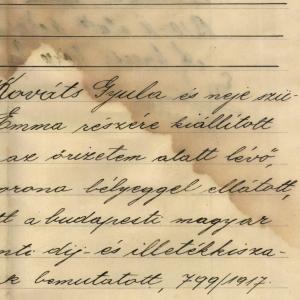 Kováts Gyula és neje szü-
Emma részére kiállított
az őrizetem alatt lévő,
korona bélyeggel ellátott,
a budapesti magyar
díj- és illetékkisza-
bemutatott, 799/1917.